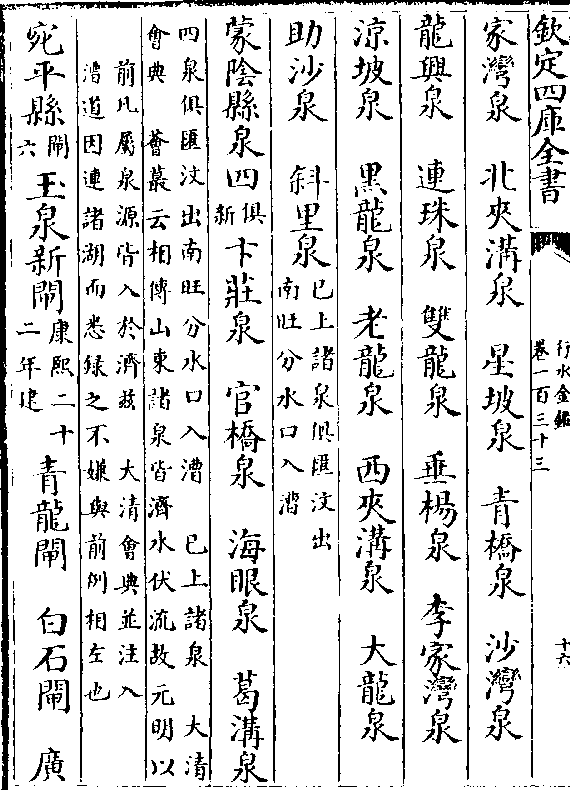 欽定四庫全書
行水金鑑
卷一百三十三
十六
家灣泉 北夾溝泉 星坡泉 青橋泉 沙灣泉
龍興泉 連珠泉 雙龍泉 垂楊泉 李家灣泉
涼坡泉 黑龍泉 老龍泉 西夾溝泉 大龍泉
助沙泉 斜里泉
已上諸泉俱匯汶出
南旺分水口入漕
蒙陰縣泉四
俱新
卞莊泉 官橋泉 海眼泉 葛溝泉
四泉俱匯汶出南旺分水口入漕 已上諸泉 大清
會典 薈蕞云相傳山東諸泉皆濟水伏流故元明以
前凡屬泉源皆入於濟茲 大清會典並注入
漕道因連諸湖而悉録之不嫌與前例相左也
宛平縣
閘六
玉泉新閘
康熙二十
二年建
青龍閘 白石閘 廣